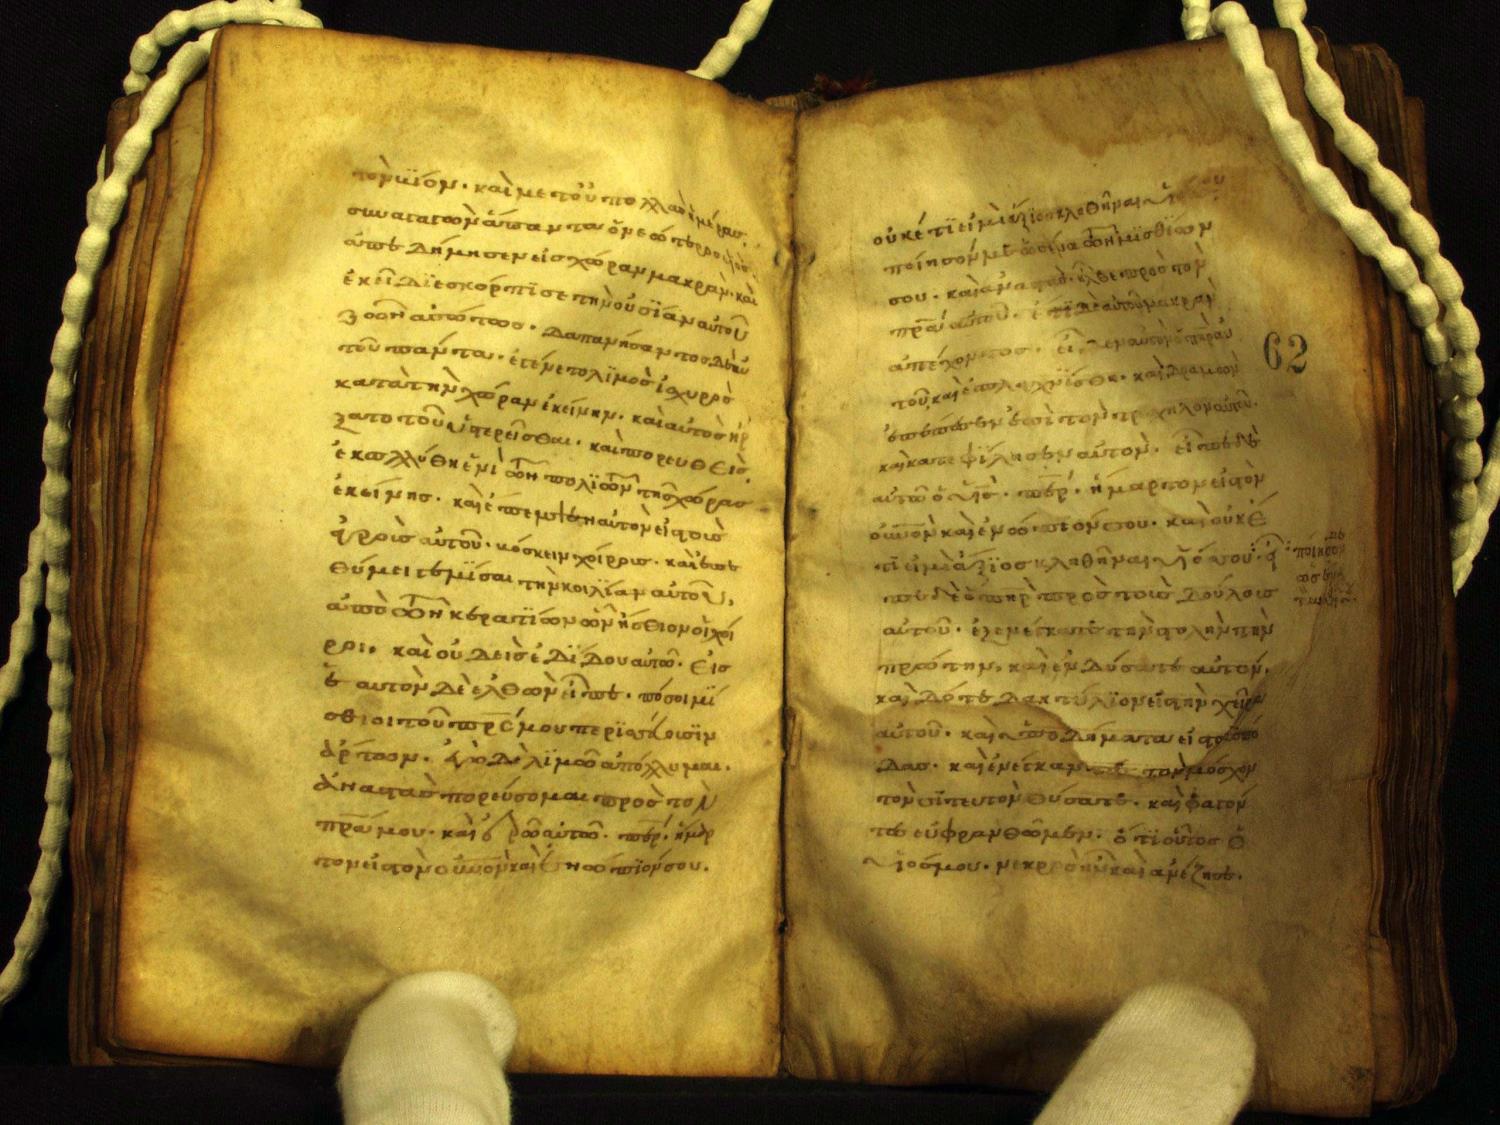 τὸν βίον· καὶ μετ οὐ πολλὰς ἡμέρας,
συναγαγὼν ἅπαντα ὁ νεώτερος υἱὸς
ἀπεδήμησεν εἰς χώραν μακρὰν· καὶ
ἐκεῖ διεσκόρπισε τὴν οὐσίαν αὐτοῦ
ζῶν ἀσώτως· δαπανήσαντος δὲ αὐ
τοῦ πάντα· ἐγένετο λιμὸς ἰσχυρὸς
κατὰ τὴν χώραν ἐκείνην· καὶ αὐτὸς ἤρ
ξατο τοῦ ὑστερεῖσθαι· καὶ πορευθεὶς
ἐκολλήθη ἑνὶ τῶν πολιτῶν τῆς χώρας
ἐκείνης· καὶ ἔπεμψεν αὐτὸν εἰς τοὺς
ἀγροὺς αὐτοῦ· βόσκειν χοίρους· καὶ ἐπε
θύμει γεμίσαι τὴν κοιλίαν αὐτοῦ,
ἀπὸ τῶν κερατίων ὧν ἤσθιον οἱ χοῖ
ροι· καὶ οὐδεὶς ἐδίδου αὐτῶ· εἰς
ἑαυτὸν δὲ ἐλθὼν εἶπε· πόσοι μί
σθιοι τοῦ πρς μου περισσεύουσιν
ἄρτων· ἐγὼ δὲ λιμῶ ἀπόλλυμαι·
ἀναστὰς πορεύσομαι πρὸς τὸν
πρα μου· καὶ ἐρῶ αὐτῶ· περ· ἥμαρ
τον εἰς τὸν οὐνον καὶ ἐνώπιόν σου·
οὐκέτι εἰμὶ ἄξιος κληθῆναι υἱός σου
ποίησόν με ὡς ἕνα τῶν μισθίων
σου· καὶ ἀναστὰς ἦλθε πρὸς τὸν
πρα αὐτοῦ· ἔτι δὲ αὐτοῦ μακρὰν
ἀπέχοντος· εἶδεν αὐτὸν ὁ πηρ αὐ
τοῦ, καὶ ἐσπλαγχνίσθη· καὶ δραμὼν
ἐπέπεσεν ἐπὶ τὸν τράχηλον αὐτοῦ·
καὶ κατεφίλησεν αὐτόν· εἶπε δὲ
αὐτῶ ὁ υἱός· περ· ἥμαρτον εἰς τὸν
οὐνον καὶ ἐνώπιόν σου· καὶ οὐκέ
τι εἰμὶ ἄξιος κληθῆναι υἱός σου·
πε δὲ ὁ πηρ πρὸς τοὺς δούλους
αὐτοῦ· ἐξενέγκατε τὴν στολὴν τὴν
πρώτην, καὶ ἐνδύσατε αὐτόν·
καὶ δότε δακτύλιον εἰς τὴν χεῖρα
αὐτοῦ· καὶ ὑποδήματα εἰς τοὺς πό
δας· καὶ ἐνέγκαντες τὸν μόσχον
τὸν σιτευτὸν θύσατε· καὶ φαγόν
τες εὐφρανθῶμεν· ὅτι οὗτος ὁ
υἱός μου· νεκρὸς ἦν καὶ ἀνέζησε·
62